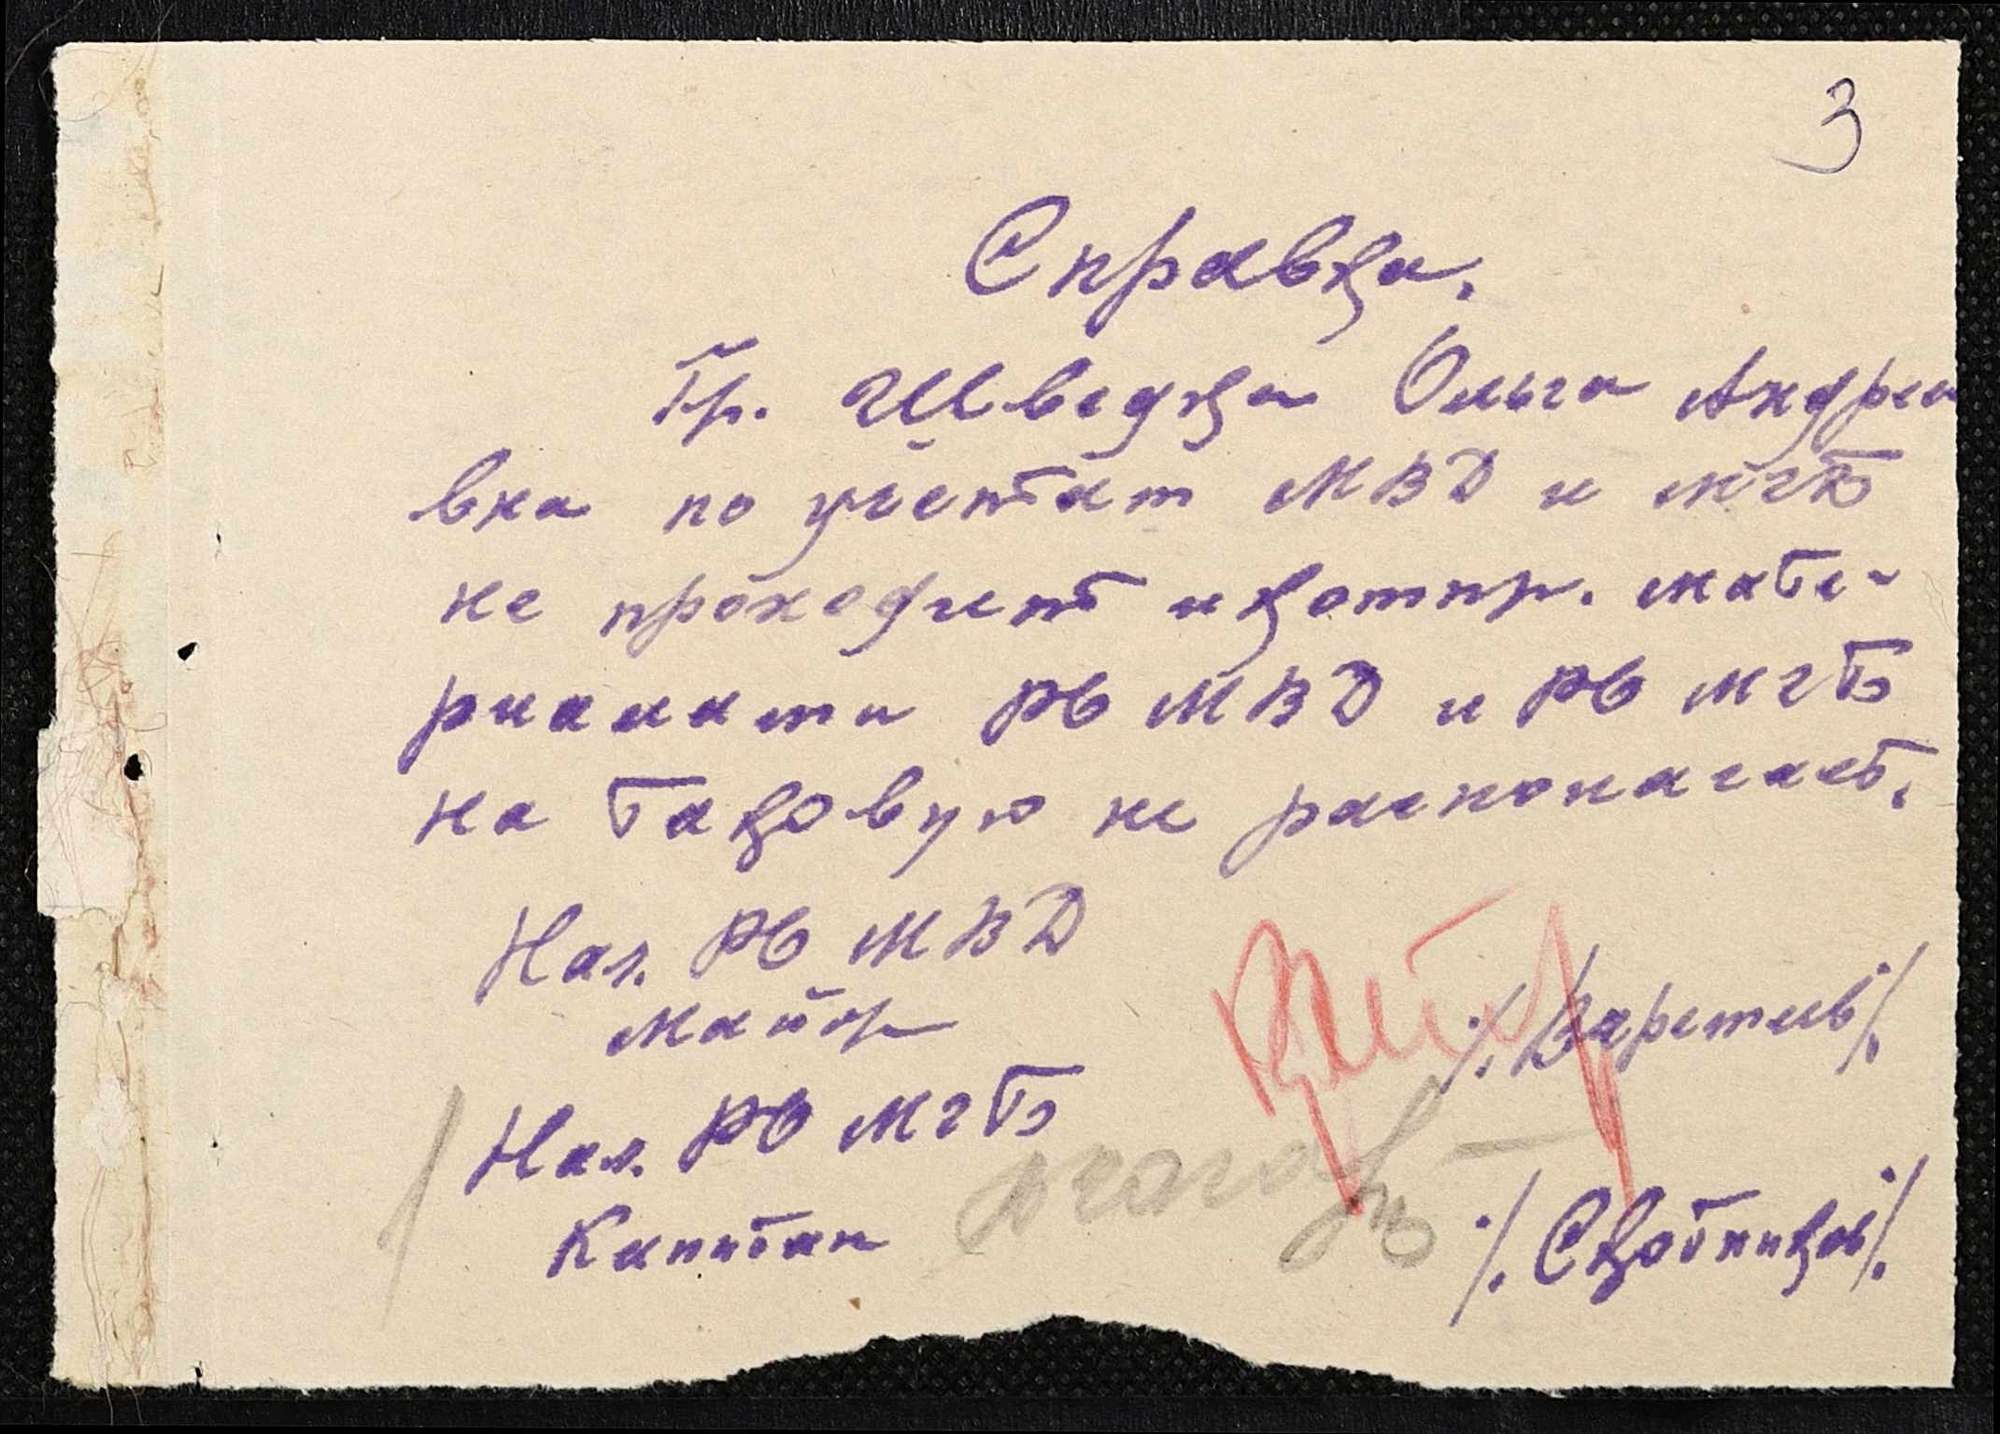 3
Справка.
Гр. Шведка Ольга Андрее
вна по учётам МВД и МГБ
не проходит и компр. мате-
риалами РО МВД и РО МГБ
на таковую не располагает.
Нач. РО МВД
майор
Нач. РО МГБ
Капитан
/Скотников/